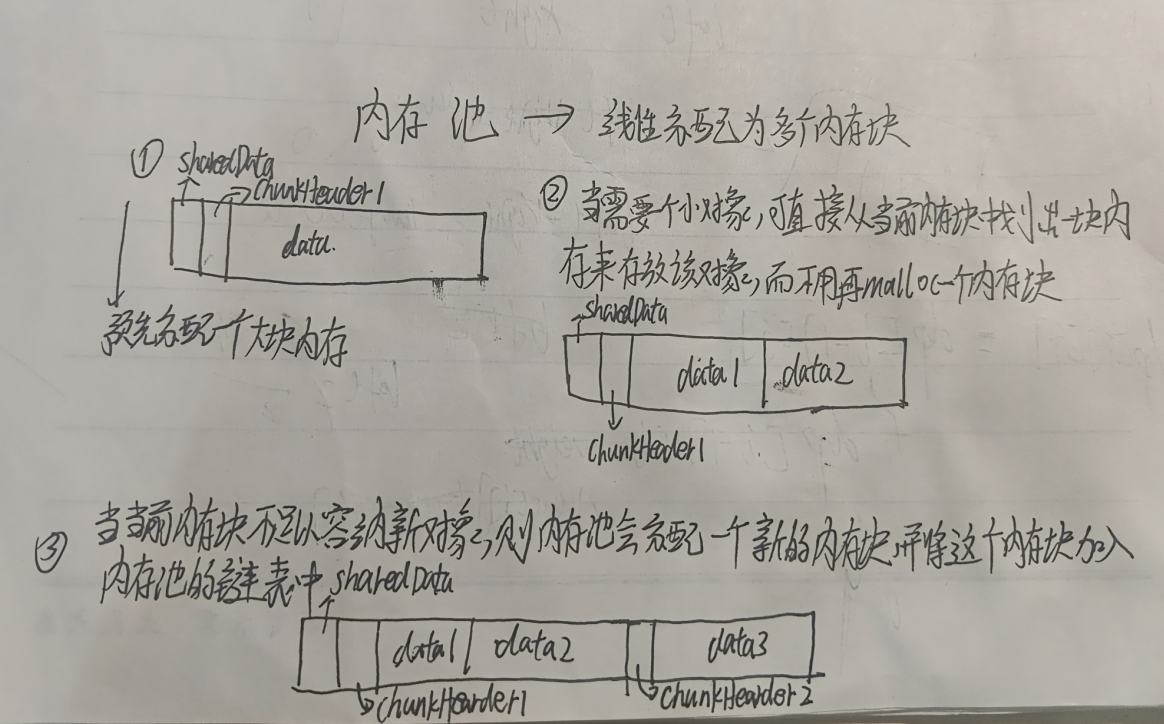 内存池 → 线性分配为多个内存块
①
sharedData
chunkHeader1
data.
预先分配一个大块内存
② 当需要个小对象，可直接从当前内存块中划出一块内
存来存放该对象，而不用再malloc一个内存块
sharedData
data1 data2
chunkHeader1
③ 当当前内存块不足以容纳新对象，则内存池会分配一个新的内存块，并将这个内存块加入
内存池的链表中
sharedData
data1 data2 data3
chunkHearder1 chunkHearder2